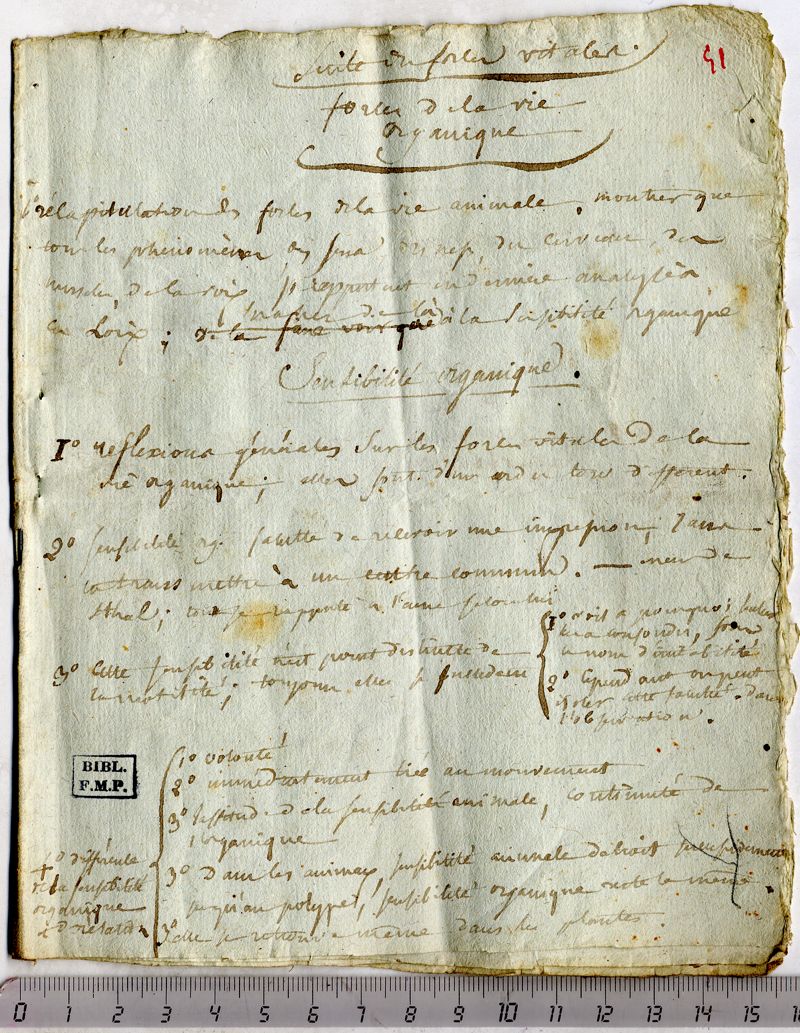 Suite des forces vitales.
51
forces de la vie
organique
1° récapitulation des forces de la vie animale, montrer que
tous les phénomènes des sens, des nerfs, du cerveau, des
muscles, de la voix se rapportent en dernière analyse à
ces Loix; de la faire voir que à la sensibilité organique
passer de là
Sensibilité organique.
1° reflexions générales sur les forces vitales de la
vie organique; elles sont d'un ordre tout différent.
2° sensibilité org. faculté de recevoir une impression, sans
la transmettre à un centre commun. —
Sthal; tout se rapporte à l'ame selon lui
3° cette sensibilité n'est point distincte de
la motilité; toujours elles se succèdent
1° voilà pourquoi
les a confondu, sous
le nom d'irritabilité
2° Cependant on peut
isoler cette faculté dans
l'observation.
BIBL.
F.M.P.
4° différence
de la sensibilité
organique
1° volonté
2° immédiatement liée au mouvement
3° de la sensibilité animale, continuité de
l'organique
3° dans les animaux, sensibilité animale décroit
jusqu'au polype, sensibilité organique reste la même
3° elle se retrouve même dans les plantes.
0 1 2 3 4 5 6 7 8 9 10 11 12 13 14 15